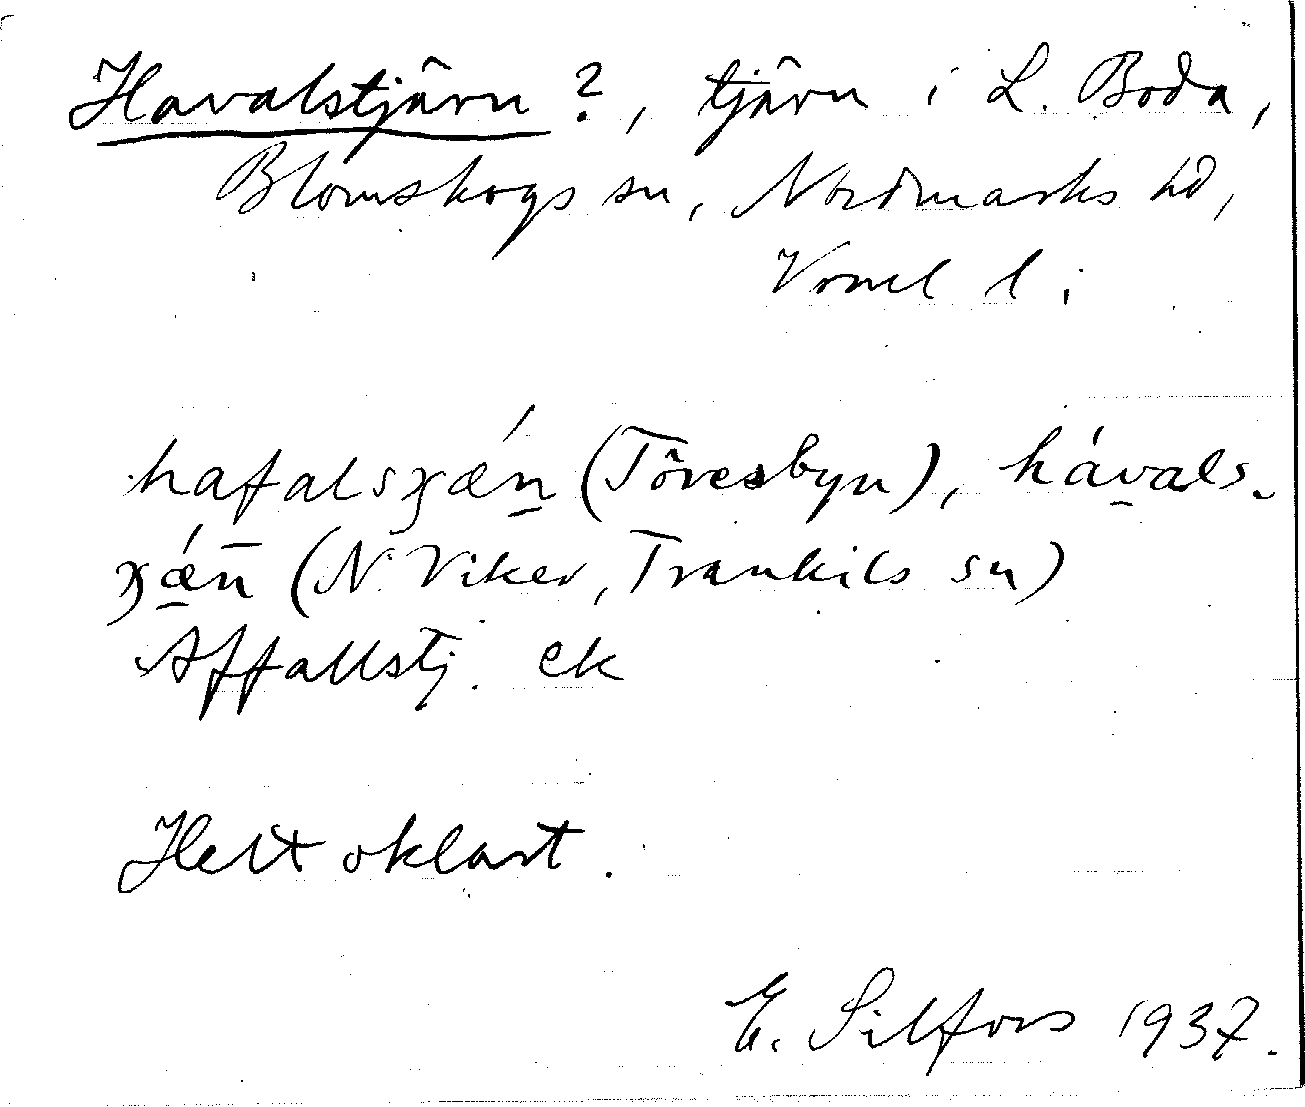 Havalstjärn ?, tjärn i L. Boda,
Blomskogs sn, Nordmarks hd,
Vrml l.
hafalsɣǽn̲ (Töresbyn), háv̲als-
ɣǽn̄ (N. Viker, Trankils sn)
Affallstj. ek
Helt oklart.
E. Silfors 1937.